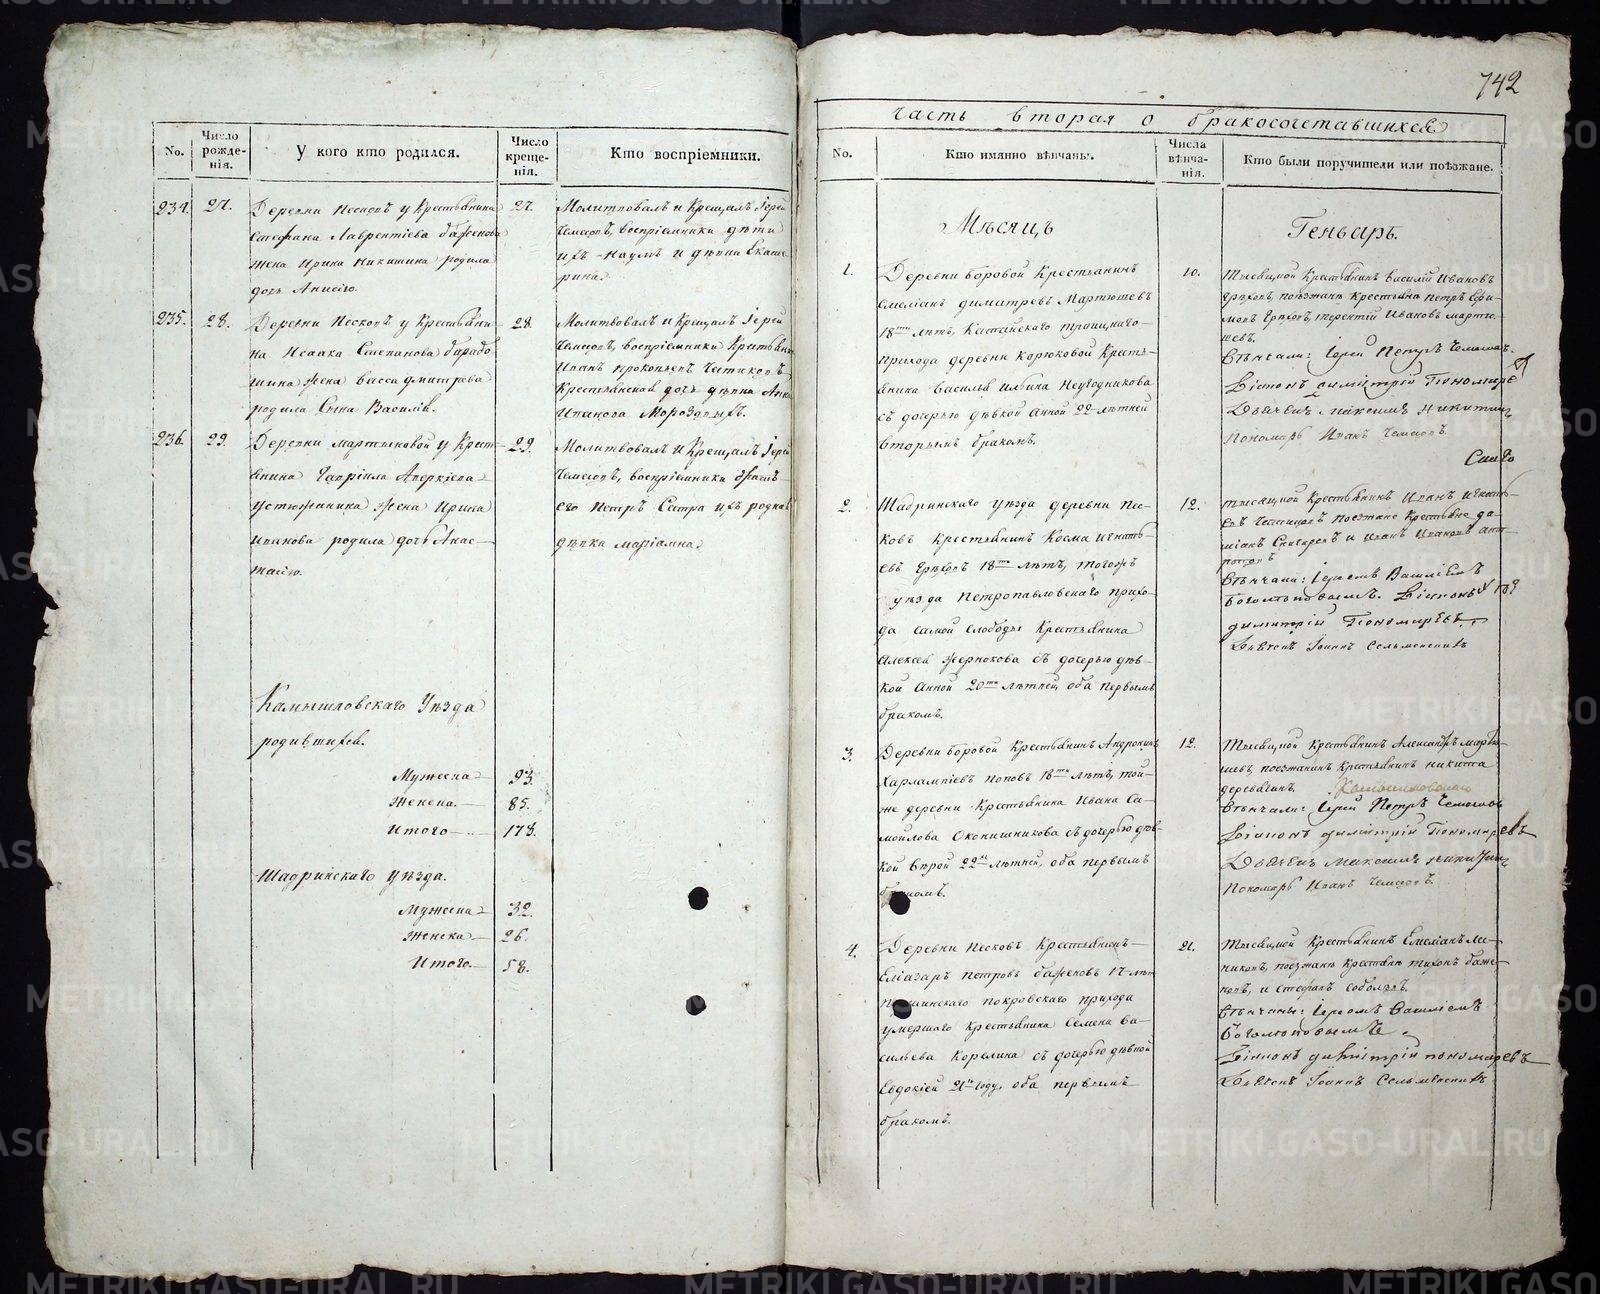 No.
Число рожде-нія.
У кого кто родился.
Число креще-нія.
Кто воспріемники.
234.
27.
Деревни Песковъ у Крестьянина
Стефана Лаврентіева Баженова
жена Ирина Никитина родила
дочь Анисію.
27.
Молитвовалъ и Крещалъ Іерей
Чемесовъ, воспріемники дѣти
ихъ Наумъ и дѣвка Екате-
рина.
235.
28.
Деревни Песковъ у Крестьяни-
на Исаака Степанова
жена Васса Дмитрева
родила Сына Василія.
28.
Молитвовалъ и Крещалъ Іерей
Чемесовъ, воспріемники Крестьянинъ
Иванъ Прокопьевъ
Крестьянская дочь дѣвка Анна
Иванова Морозовыхъ.
236.
29.
Деревни Мартыновой у Крест-
янина Гавріила Аверкіева
Устюжанина жена Ирина
Иванова родила дочь Анас-
тасію.
29.
Молитвовалъ и Крещалъ Іерей
Чемесовъ, воспріемники
его Петръ Сестра ихъ родная
дѣвка Маріамна.
Камышловскаго Уѣзда
родившихся.
Мужеска 93.
Женска. 85.
Итого 178.
Шадринскаго уѣзда.
Мужеска 32.
Женска 26.
Итого. 58.
742
Часть вторая о бракосочетавшихся
No.
Кто имянно вѣнчаны.
Числа вѣнча-нія.
Кто были поручители или поѣзжане.
Мѣсяцъ
Геньварь.
1.
Деревни Боровой Крестьянинъ
Емеліанъ Димитревъ Мартюшевъ
18ти лѣтъ, Катайскаго Троицкаго
прихода деревни Корюковой Кресть-
янина Василья Ильина Неугодникова
съ дочерью дѣвкой Анной 22 лѣтней
вторымъ бракомъ.
10.
Тысяцкой Крестьянинъ Василій Ивановъ
Грѣховъ, поѣзжана Крестьяна Петръ Ефи-
мовъ Грѣховъ, Терентій Ивановъ Мартю-
шевъ.
Вѣнчали: Іерей Петръ Чемесовъ.
Діаконъ Димитрій Пономаревъ
Дьячекъ Максимъ Никитинъ
Пономарь Иванъ Чемесовъ.
2.
Шадринскаго уѣзда деревни Пес-
ковъ Крестьянинъ Косма Игнать-
евъ Грѣховъ 18ти лѣтъ, тогожъ
уѣзда Петропавловскаго прихо-
да самой слободы Крестьянина
Алексея Жернокова съ дочерью дѣв-
кой Анной 20ти лѣтней, оба первымъ
бракомъ.
12.
Тысяцкой Крестьянинъ Иванъ Игнать-
евъ поезжане Крестьяне Да-
міанъ Снигиревъ и Иванъ Ивановъ
Вѣнчали: Іереемъ Василіемъ
Боголюбовымъ. Діаконъ
Димитрій Пономаревъ.
Дьячекъ Іоаннъ Сельменскихъ
3.
Деревни Боровой Крестьянинъ Андроникъ
Харлампіевъ Поповъ 18ти лѣтъ, той-
же деревни Крестьянина Ивана Са-
мойлова Оконишникова съ дочерью дѣв-
кой Вѣрой 22хъ лѣтней, оба первымъ
бракомъ.
12.
Тысяцкой Крестьянинъ Александръ Мартю-
шевъ, поезжанинъ Крестьянинъ Никита
Деревягинъ.
Вѣнчали: Іерей Петръ Чемесовъ
Діаконъ Димитрій Пономаревъ
Дьячекъ Максимъ Никитинъ
Пономарь Иванъ Чемесовъ.
4.
Деревни Песковъ Крестьянинъ
Еліазаръ Петровъ Баженовъ 17 лѣтъ
Покровскаго прихода
умершаго Крестьянина Семена Ва-
сильева Корелина съ дочерью дѣвкой
Евдокіей 21го году, оба первымъ
бракомъ.
21.
Тысяцкой Крестьянинъ Емеліанъ
поезжана Крестьяна Тихонъ Баже-
новъ, и Стефанъ Соболевъ.
Вѣнчаны: Іереемъ Василіемъ
Боголюбовымъ.
Діаконъ Димитрій Пономаревъ
Дьячекъ Іоаннъ Сельменскихъ
METRIKI.GASO-URAL.RU